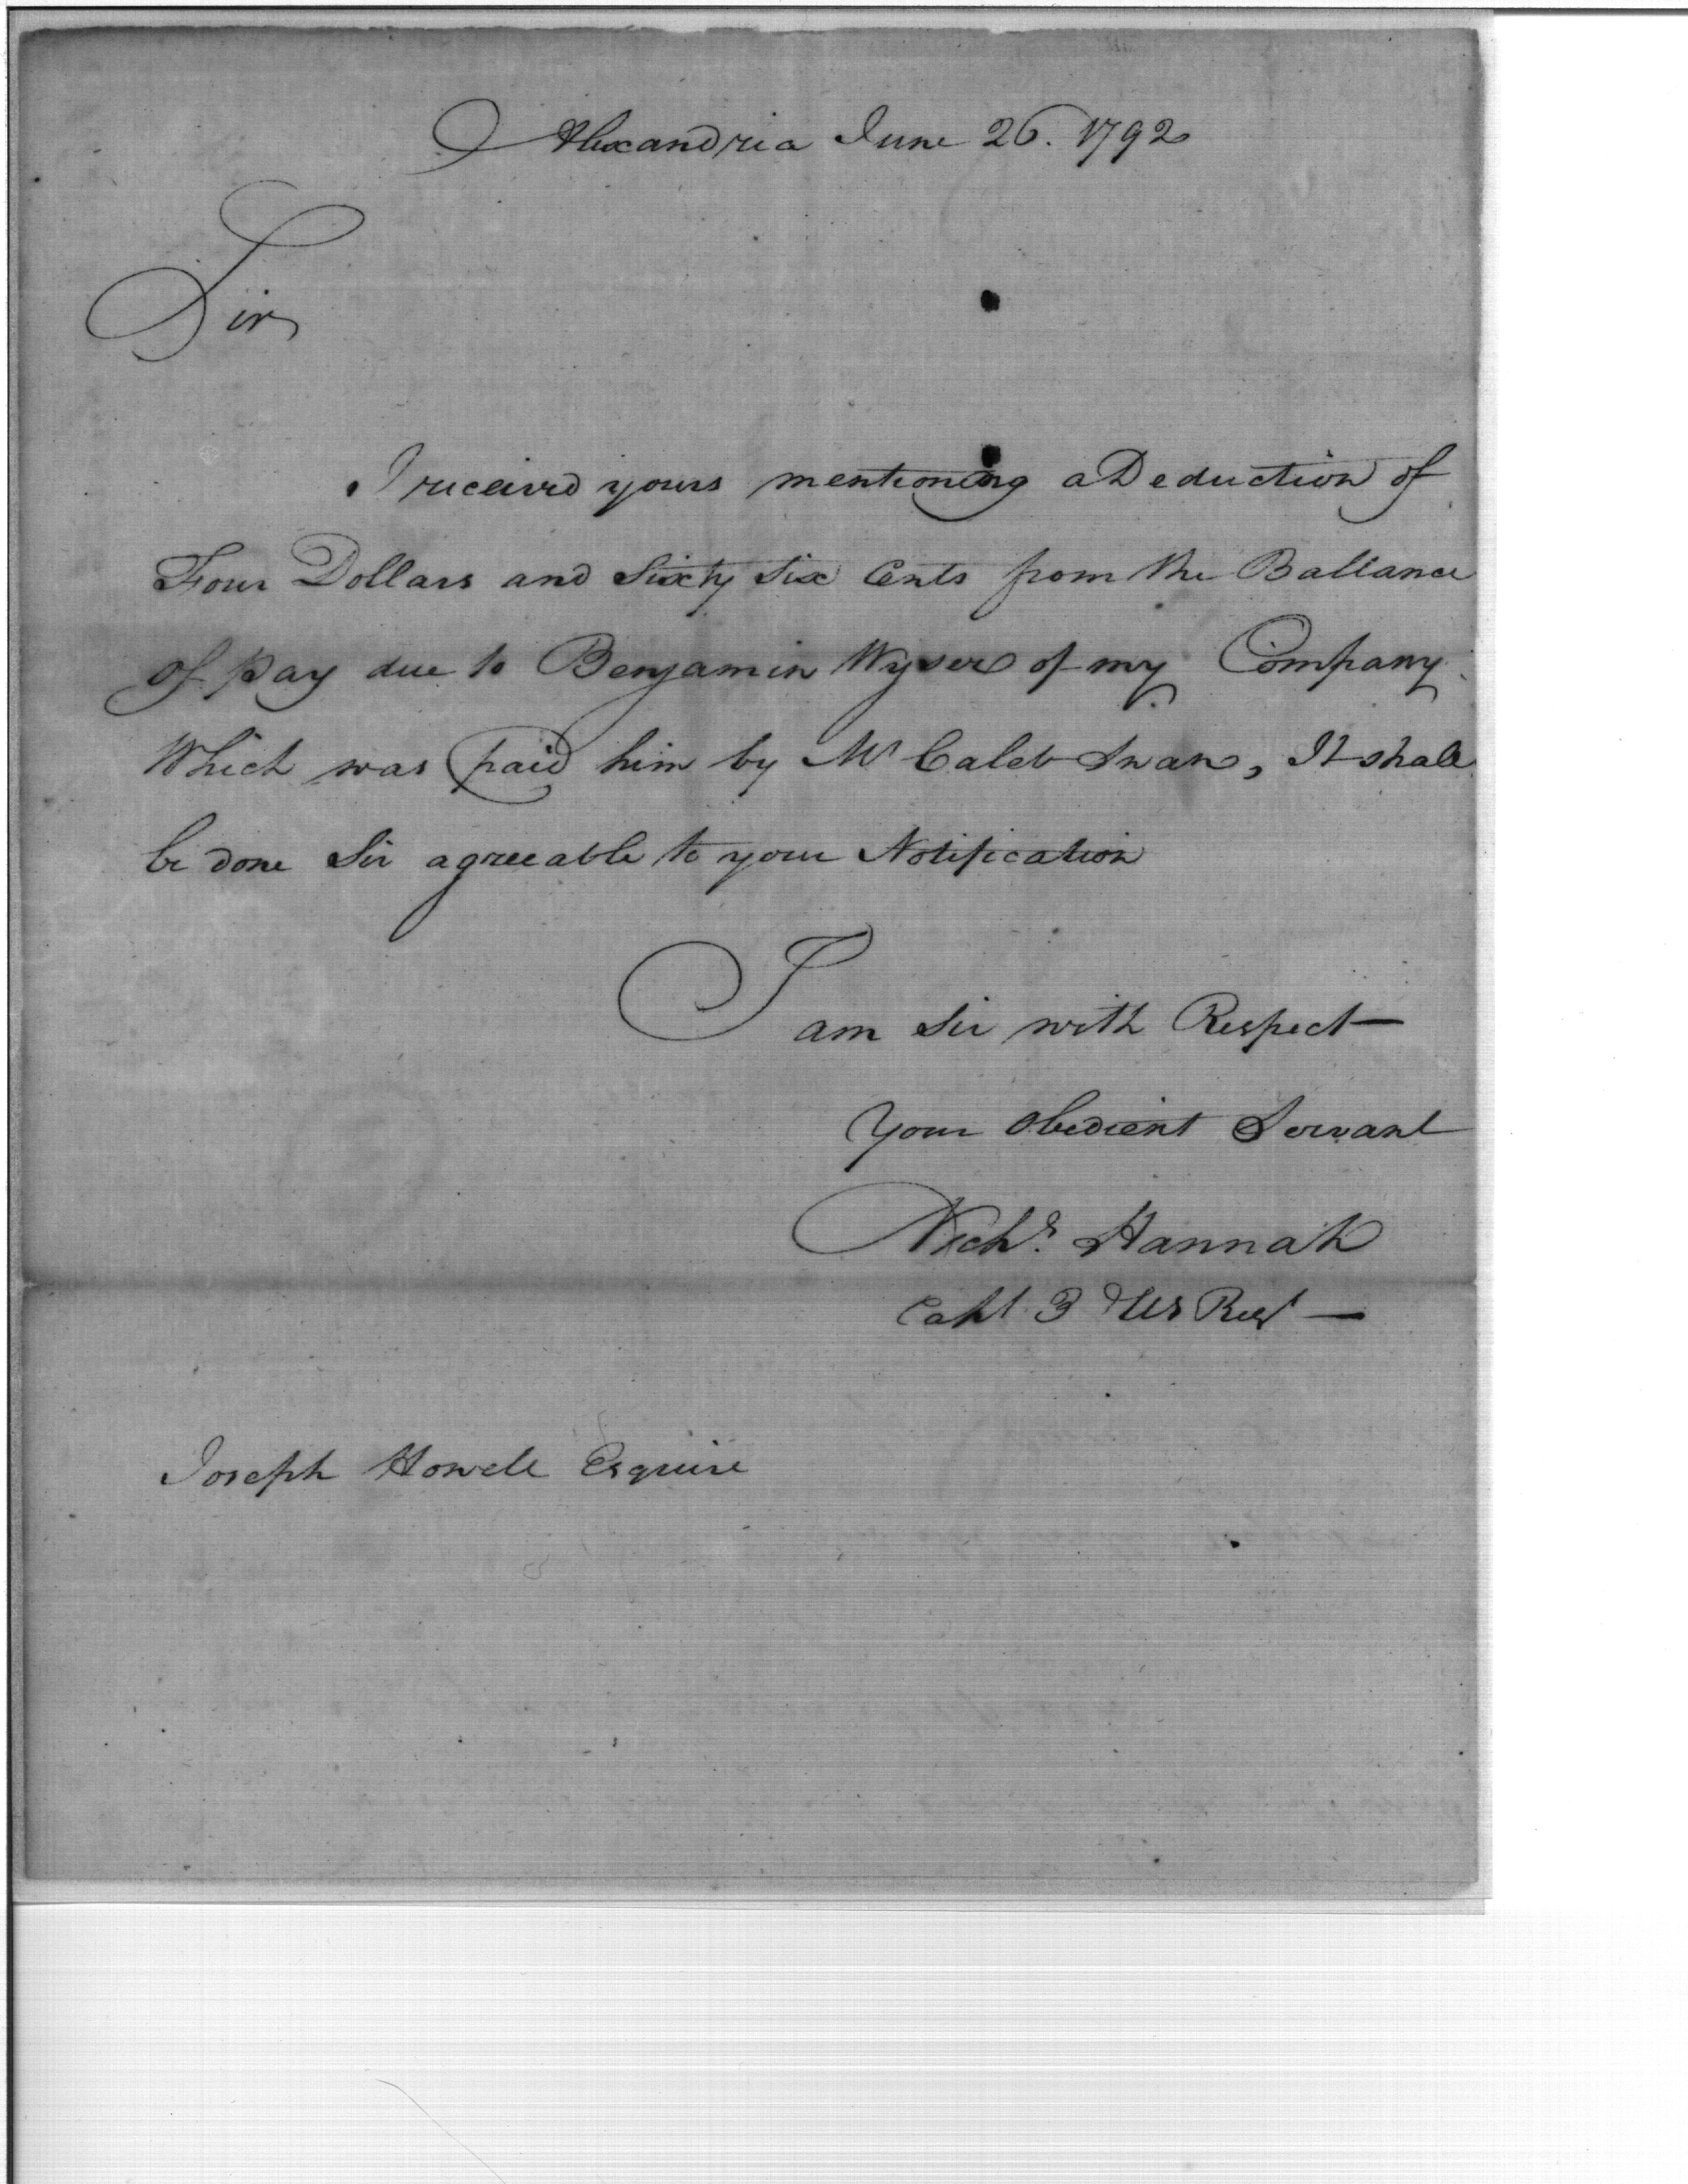 Alexandria June 26. 1792
Sir
I received yours mentioning a Deduction of
Four Dollars and Sixty Six Cents from the Ballance
of pay due to Benjamin Wyser of my Company
Which was paid him by Mr Caleb Swan, It shall
be done Sir agreeable to your Notification
I am Sir with Respect
Your Obedient Servant
Nichs. Hannah
Capt 3 US Regt
Joseph Howell Esquire